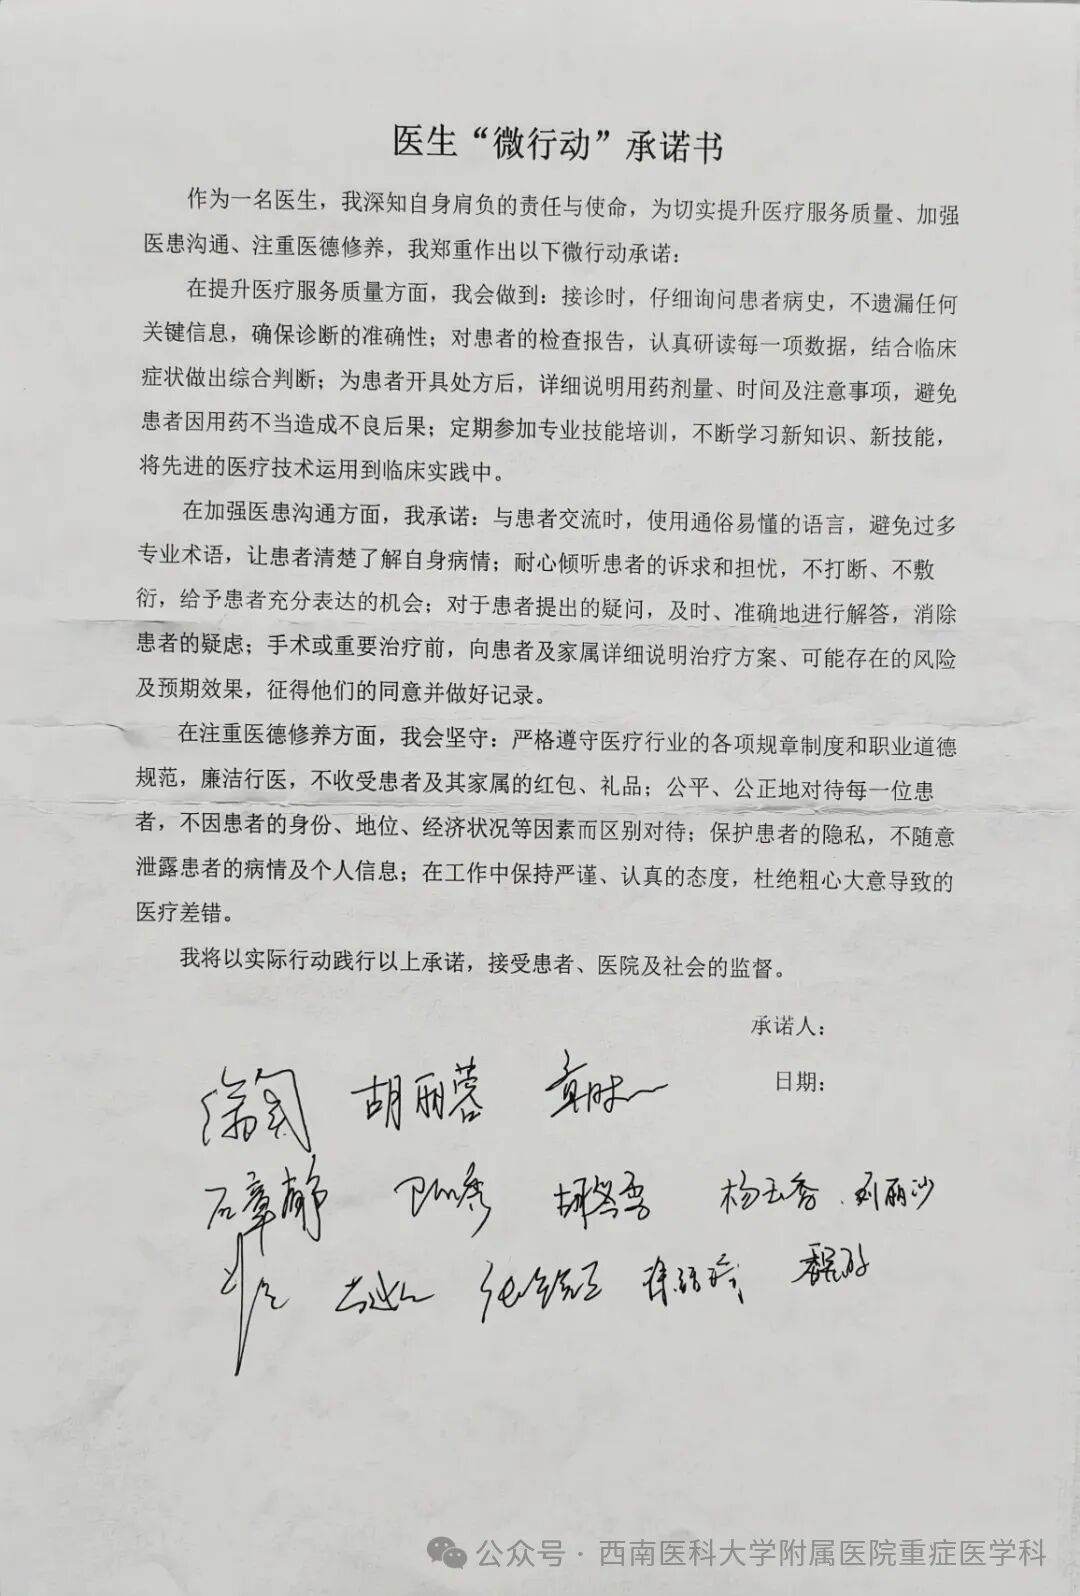 医生“微行动”承诺书
作为一名医生，我深知自身肩负的责任与使命，为切实提升医疗服务质量、加强
医患沟通、注重医德修养，我郑重作出以下微行动承诺：
在提升医疗服务质量方面，我会做到：接诊时，仔细询问患者病史，不遗漏任何
关键信息，确保诊断的准确性；对患者的检查报告，认真研读每一项数据，结合临床
症状做出综合判断；为患者开具处方后，详细说明用药剂量、时间及注意事项，避免
患者因用药不当造成不良后果；定期参加专业技能培训，不断学习新知识、新技能，
将先进的医疗技术运用到临床实践中。
在加强医患沟通方面，我承诺：与患者交流时，使用通俗易懂的语言，避免过多
专业术语，让患者清楚了解自身病情；耐心倾听患者的诉求和担忧，不打断、不敷
衍，给予患者充分表达的机会；对于患者提出的疑问，及时、准确地进行解答，消除
患者的疑虑；手术或重要治疗前，向患者及家属详细说明治疗方案、可能存在的风险
及预期效果，征得他们的同意并做好记录。
在注重医德修养方面，我会坚守：严格遵守医疗行业的各项规章制度和职业道德
规范，廉洁行医，不收受患者及其家属的红包、礼品；公平、公正地对待每一位患
者，不因患者的身份、地位、经济状况等因素而区别对待；保护患者的隐私，不随意
泄露患者的病情及个人信息；在工作中保持严谨、认真的态度，杜绝粗心大意导致的
医疗差错。
我将以实际行动践行以上承诺，接受患者、医院及社会的监督。
承诺人：
日期：
胡丽蓉
石章静 杨玉香 刘丽沙
公众号·西南医科大学附属医院重症医学科